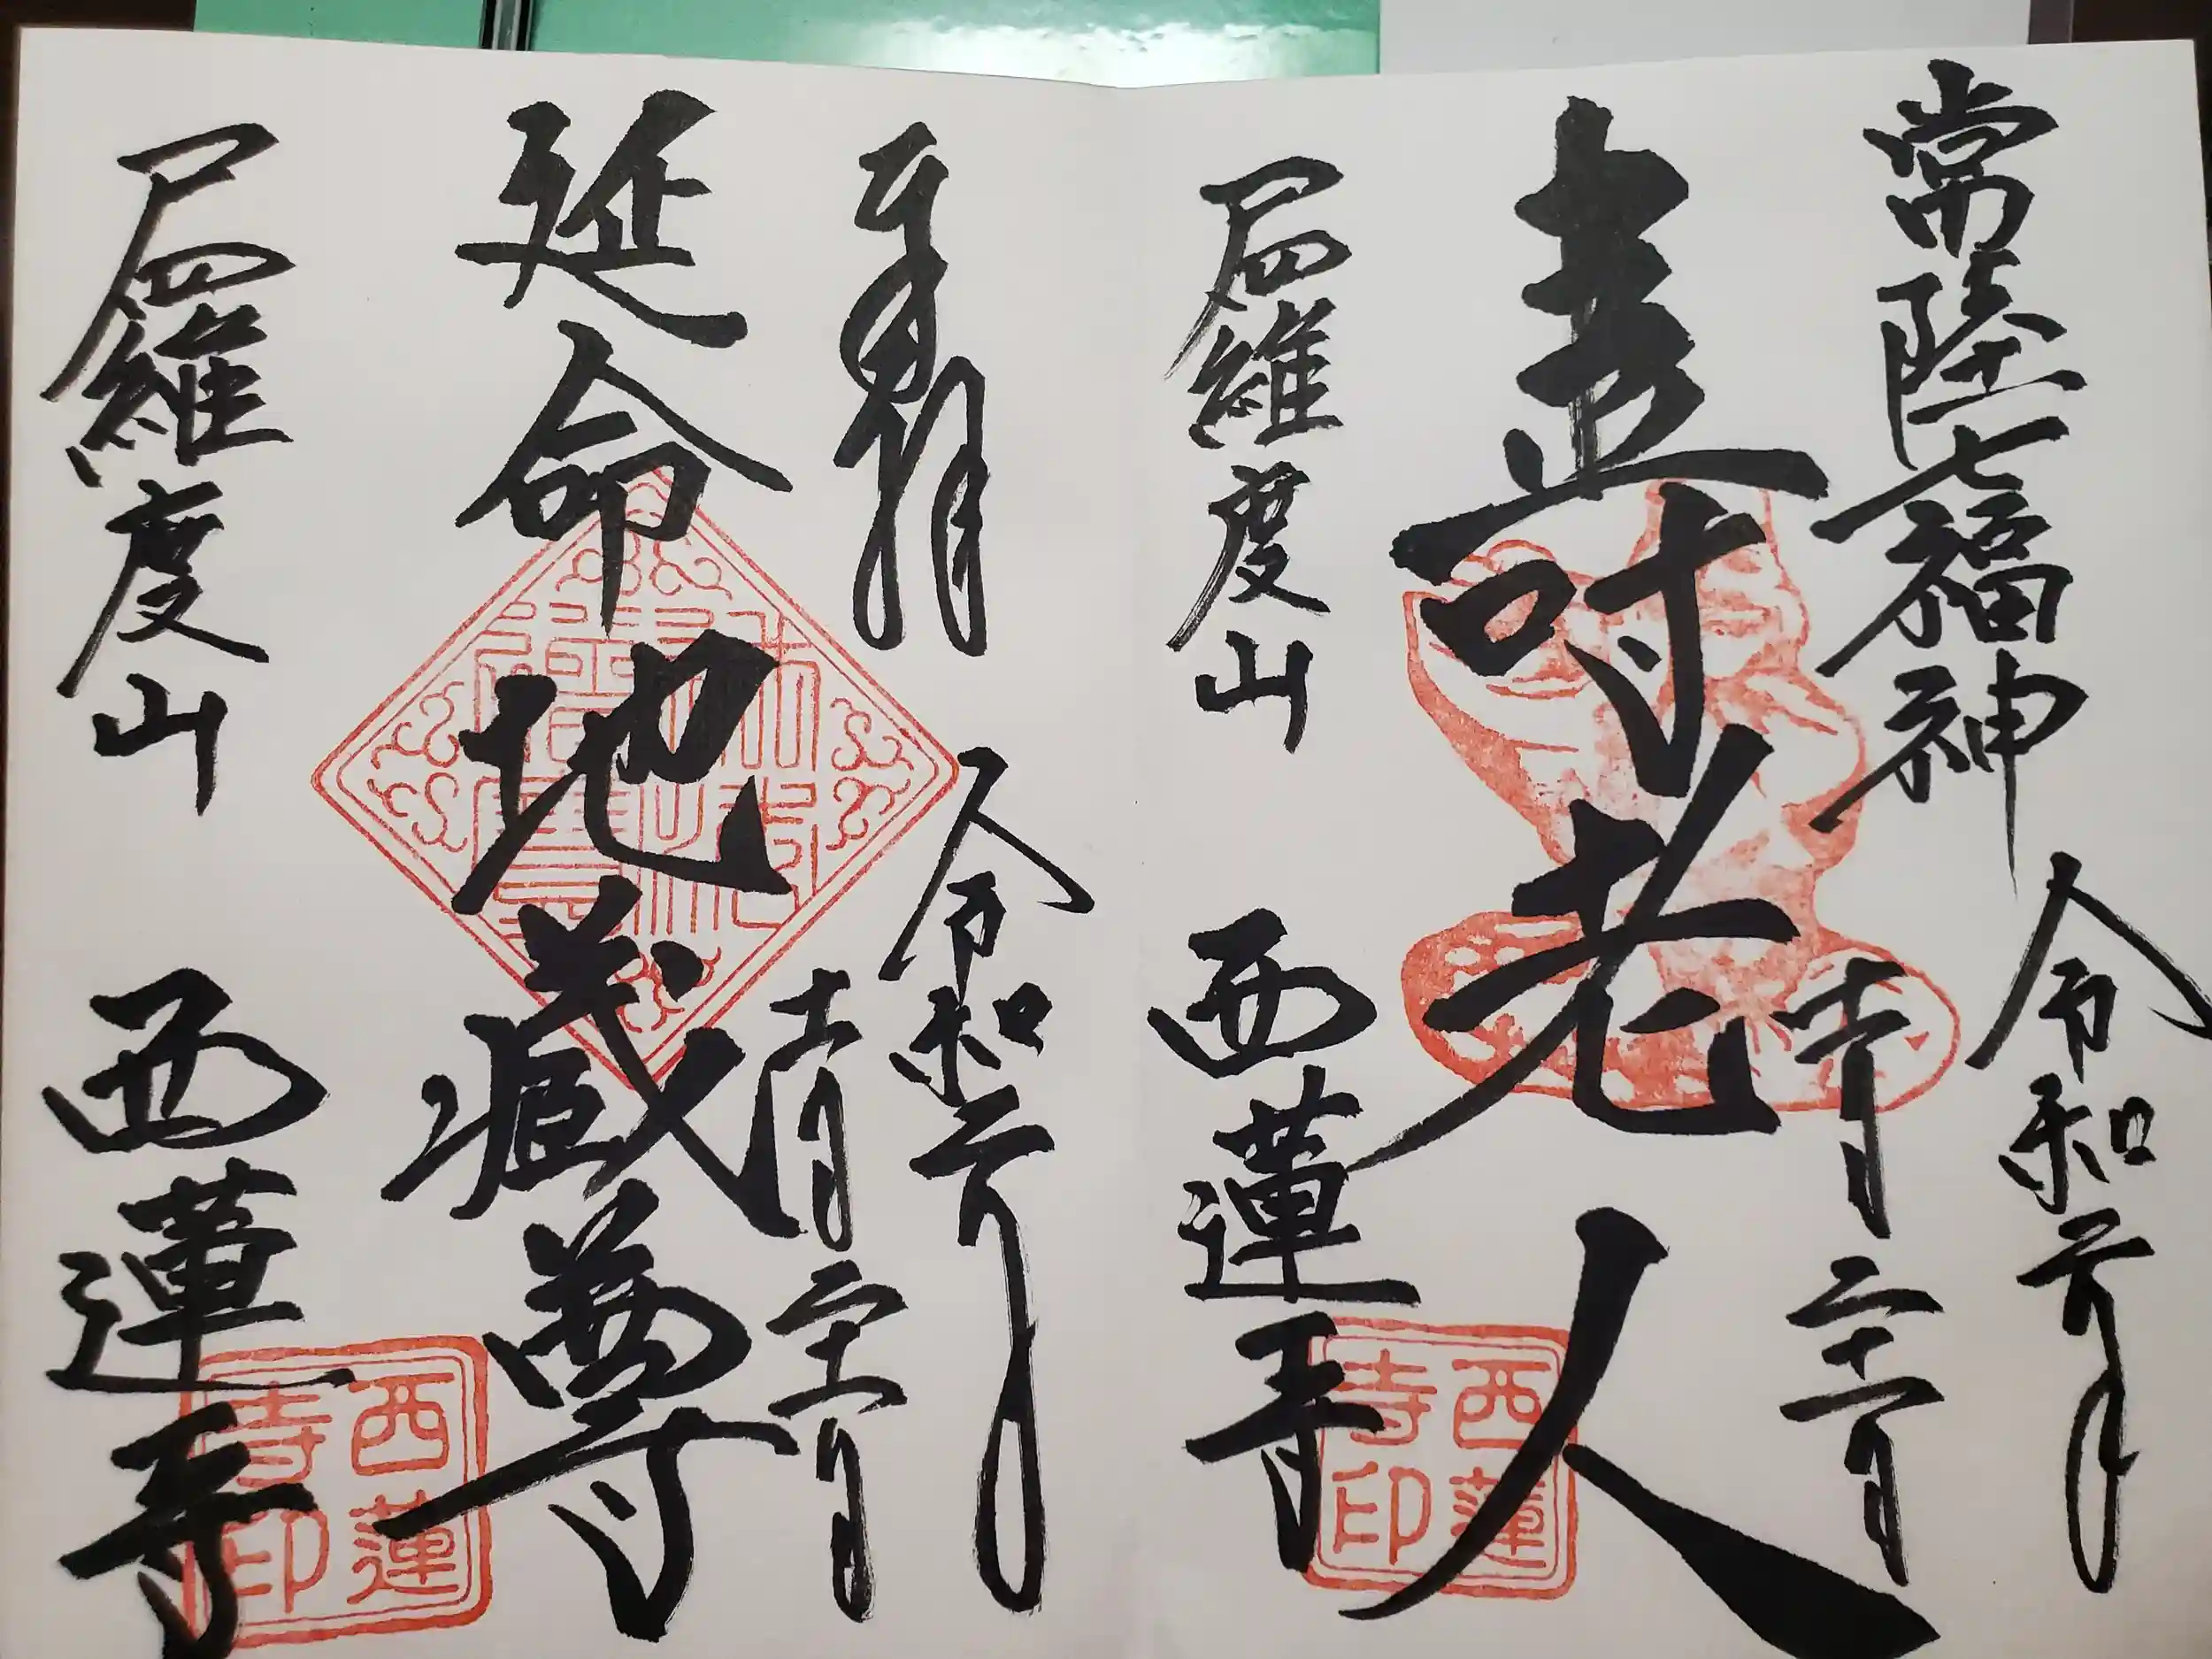 常陸七福神 令和元年
十一月
壽老人
尸羅度山 西蓮寺
西蓮
寺印
奉拝 令和元年
十一月
延命地蔵尊
尸羅度山 西蓮寺
西蓮
寺印